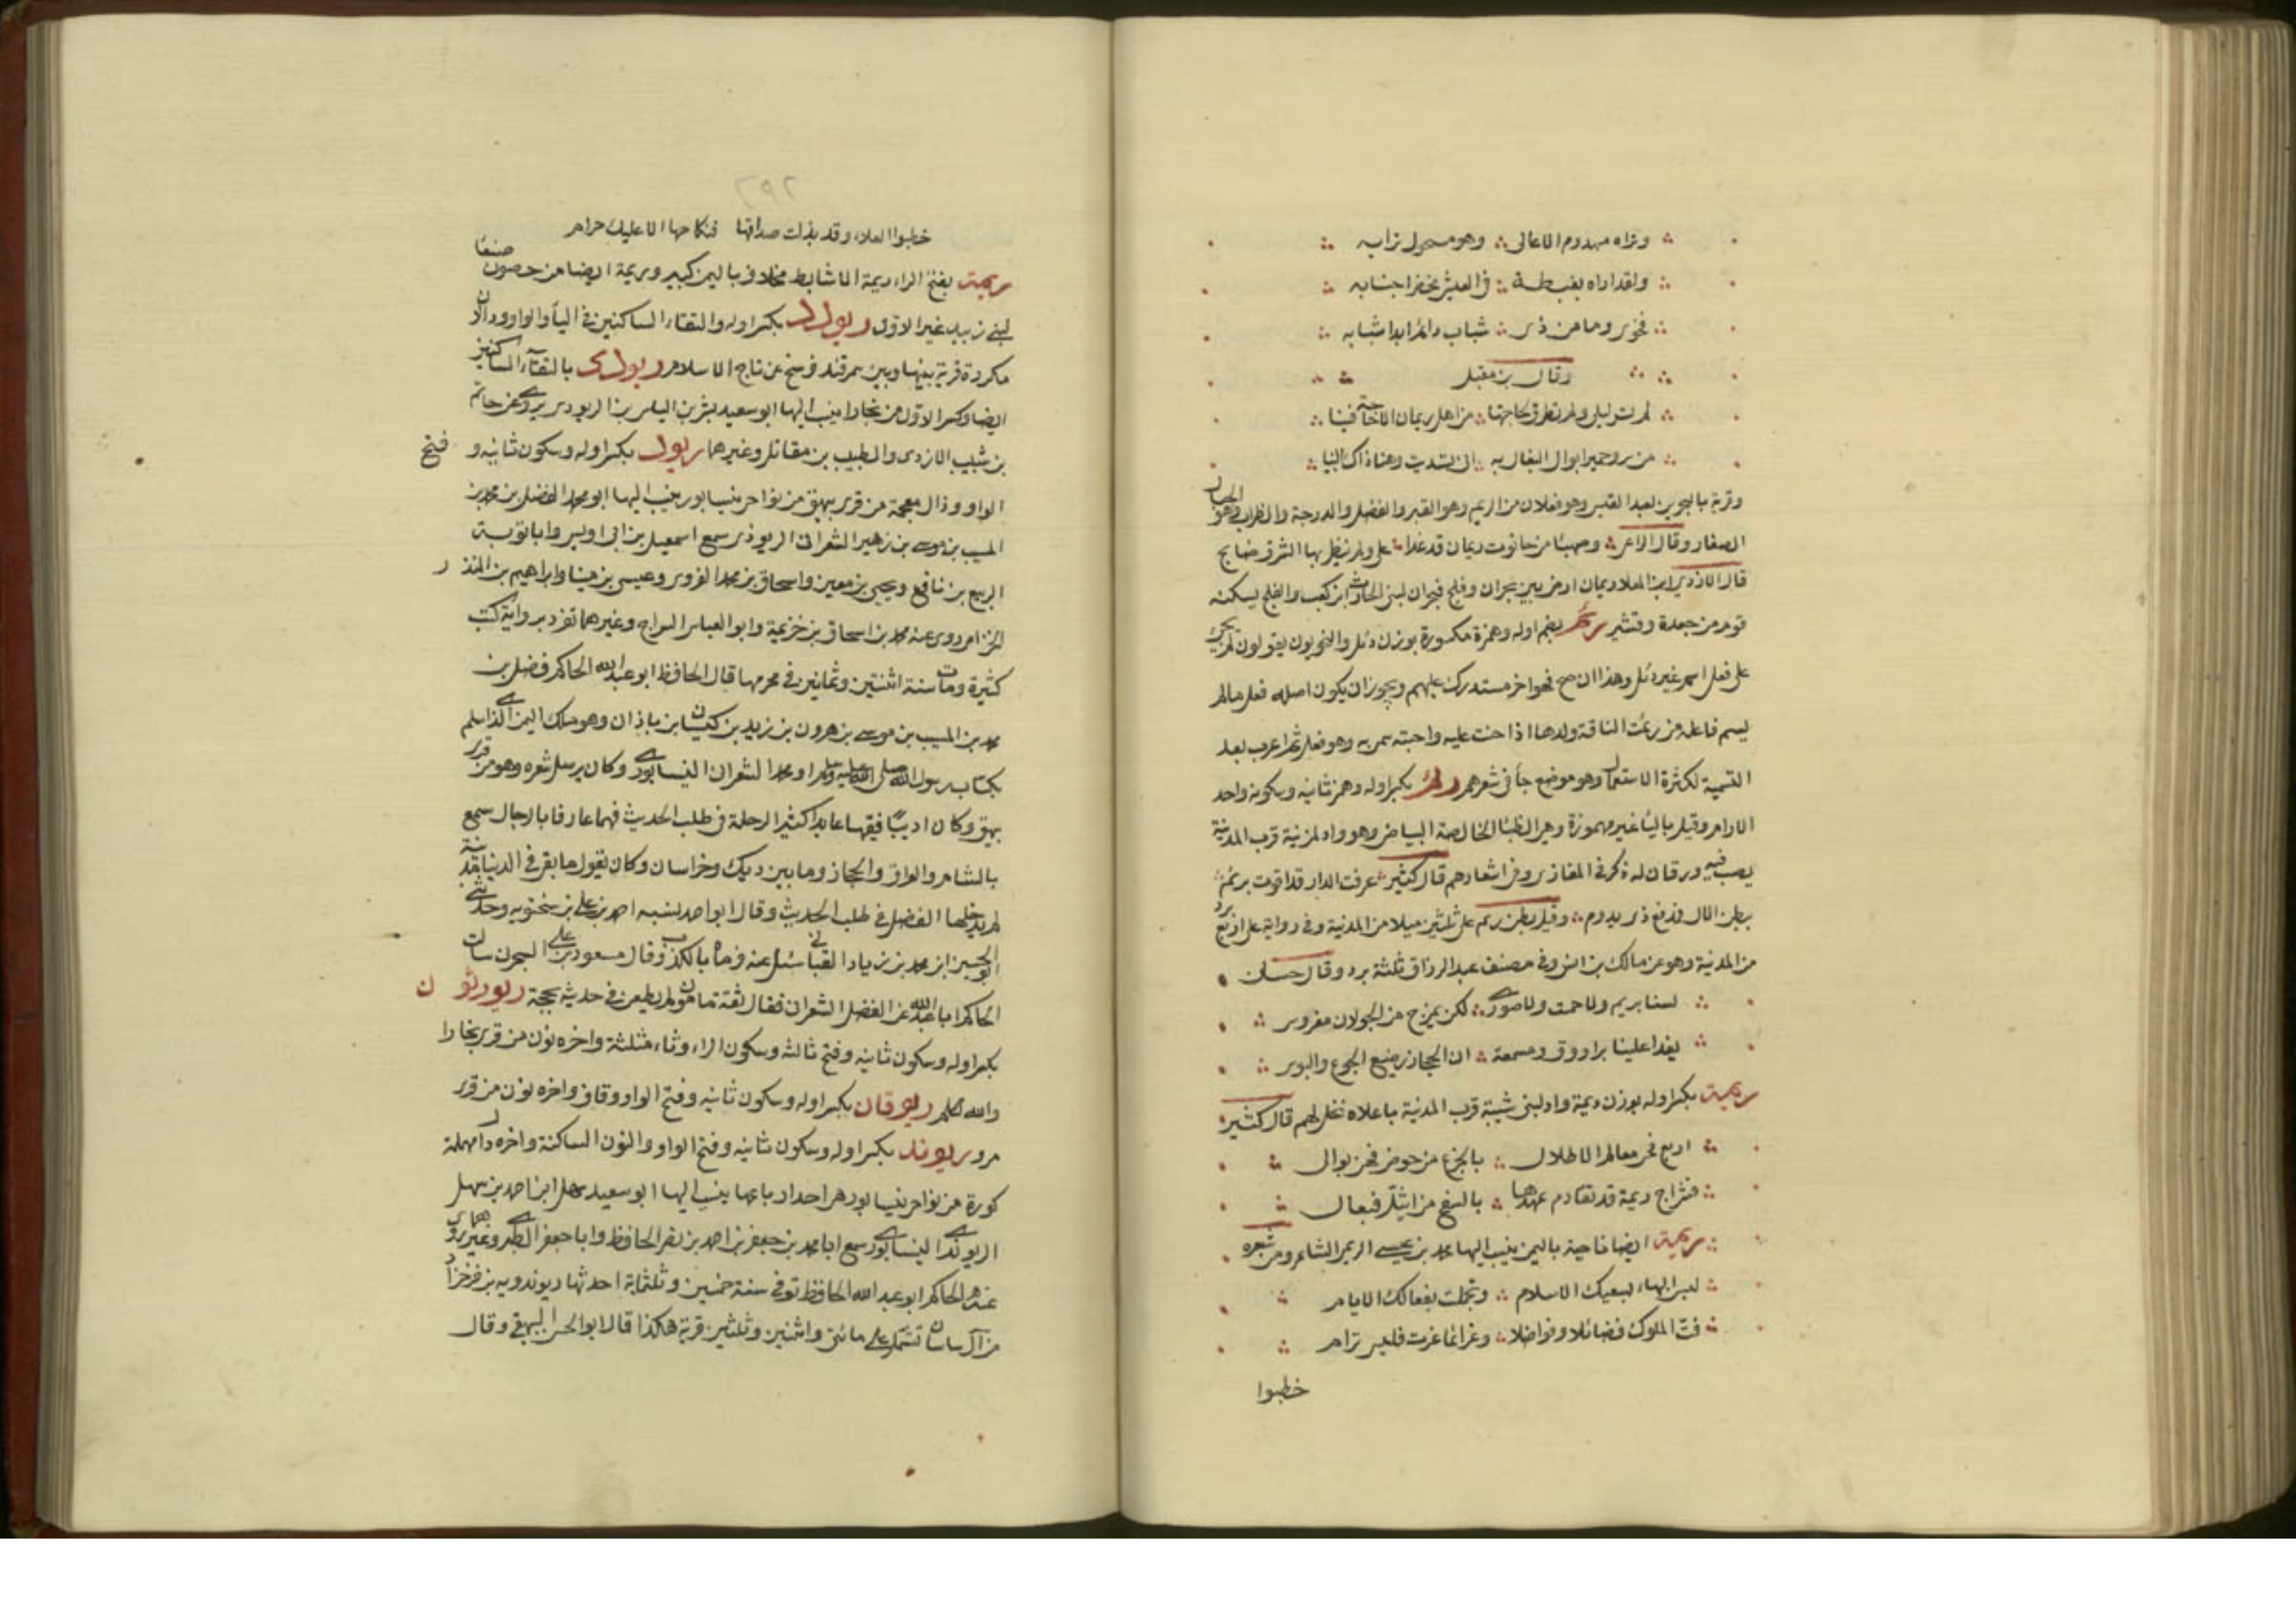 وتراه مهدوم الاعالى وهو مسحول ترابه
ولقد اراه بغبطة فى العيش مخضرا جنابه
فخوى وما من ذى شباب دائم ابدا شبابه
وقال بن مقبل
لم تسر ليلى ولم تطرق لحاجتها من اهل ريمان الا حاجة فينا
من سرو حمير ابوال البغال به انى تسديت وهنا ذاك البينا
وقرية بالبحرين لعبد القيس وهو فعلان من الريم وهو القبر والفضل والدرجة والظراب وهو الجبال
الصغار وقال الراعى وصهبا من حانوت ريمان قد غدا على ولم ينظر بها الشرق ضابح
قال الازدى ابن المعلا ريمان ارض بين نجران وفلج فنجران لبنى الحارث ابن كعب والفلج يسكنه
قوم من جعدة وقشير رئم بضم اوله وهمزة مكسورة بوزن دئل والنحويون يقولون لم يجئ
على فعل اسم غير دئل وهذا ان صح فهو اخر مستدرك عليهم ويجوز ان يكون اصله فعل مالم
يسم فاعله من رئمت الناقة ولدها اذا حنت عليه واحبته سمى به وهو فعل ثم اعرب بعد
التسمية لكثرة الاستعمال وهو موضع جأ فى شعرهم رئم بكسر اوله وهمز ثانيه وسكونه واحد
الارام وقيل باليأ غير مهموزة وهى الظبأ الخالصة البياض وهو واد لمزنية قرب المدينة
يصب فيه ورقان له ذكر فى المغازى وفى اشعارهم قال كثير عرفت الدار قد اقوت برئم
ببطن الال فدفع ذى يدوم وقيل بطن ريم على ثلثين ميلا من المدينة وفى رواية على اربع برد
من المدنية وهو عن مالك بن انس وفى مصنف عبد الرزاق ثلثة برد وقال حسان
لسنا بريم ولا حمت ولا صورى لكن بمرج من الجولان مغروس
يغدا علينا براووق ومسمعة ان الحجاز رضيع الجوع والبوس
ريمة بكسر اوله بوزن ديمة واد لبنى شيبة قرب المدينة باعلاه نخل لهم قال كثير
اربع فحى معالم الاطلال بالجزع من حرض فهن بوال
فشراج ريمة قد تقادم عهدها بالسفح من اثيل فبعال
ريمة ايضا ناحية باليمن ينسب اليها محمد بن عيسى الريمى الشاعر ومن شعره
لبس البهاء لسعيك الاسلام وتجملت بفعالك الايام
فتّ الملوك فضائلا وفواضلا وعزائما عزت فليس ترام
خطبوا
٢٩٢
خطبوا العلاء وقد بذلت صداقها فنكاحها الا عليك حرام
ريمة بفتح الراء ريمة الاشابط مخلاف باليمن كبير وريمة ايضا من حصون صنعا
لبنى زبيد غير الاول ريودد بكسر اوله والتقاء الساكنين فى اليأ والواو ودال
مكررة قرية بينها وبين سمرقند فرسخ عن تاج الاسلام ريودى بالتقاء الساكنين
ايضا وكسر الاول من بخارا ينسب اليها ابو سعيد بشر بن الياس بن الريودى يروى عن حاتم
بن شبيب الازدى والطيب بن مقاتل وغيرهما ريوذ بكسر اوله وسكون ثانيه وفتح
الواو وذال معجمة من قرى بيهق من نواحى نيسابور ينسب اليها ابو محمد الفضل بن محمد بن
المسيب بن موسى بن زهير الشعرانى الريوذى سمع اسمعيل بن ابى اويس وابا توبة
الربيع بن نافع ويحيى بن معين واسحاق بن محمد الفروى وعيسى بن مينا وابراهيم بن المنذر
الحزامى روى عنه محمد بن اسحاق بن خزيمة وابو العباس السراج وغيرهما تفرد برواية كتب
كثيرة ومات سنة اثنتين وثمانين فى محرمها قال الحافظ ابو عبد الله الحاكم فضل بن
محمد بن المسيب بن موسى بن هرون بن زيد بن كيسان بن باذان وهو ملك اليمن الذى اسلم
بكتاب رسول الله صلى الله عليه وسلم ابو محمد الشعرانى النيسابورى وكان يرسل شعره وهو من قرى
بيهق وكان اديبًا فقيها عابدا كثير الرحلة فى طلب الحديث فهما عارفا بالرجال سمع
بالشام والعراق والحجاز وما بين ذلك وخراسان وكان يقول ما بقى فى الدنيا مدينة
لم يدخلها الفضل فى طلب الحديث وقال ابو احمد نسبه احمد بن على بن سختويه وحدثنى
ابو الحسين ابن محمد بن زياد القبانى سئل عنه فرماه بالكذب وقال مسعود بن على السجزى سالت
الحاكم ابا عبد الله عن الفضل الشعرانى فقال ثقة مامون لم يطعن فى حديثه بحجة ريورثون
بكسر اوله وسكون ثانيه وفتح ثالثه وسكون الراء وثاء مثلثة واخره نون من قرى بخارا
والله اعلم ريوقان بكسر اوله وسكون ثانيه وفتح الواو وقاف واخره نون من قرى
مرو ريوند بكسر اوله وسكون ثانيه وفتح الواو والنون الساكنة واخره دال مهملة
كورة من نواحى نيسابور هى احد ارباعها ينسب اليها ابو سعيد سهل ابن احمد بن سهل
الريوندى النيسابورى سمع ابا محمد بن جعفر بن احمد بن نصر الحافظ وابا جعفر الطبرى وغيرهما روى
عنه الحاكم ابو عبد الله الحافظ توفى سنة خمسين وثلثماية احدثها ريوندويه بن فرخزاد
من آل ساسان تشتمل على مائتى واثنين وثلثين قرية هكذا قال ابو الحسن البيهقى وقال